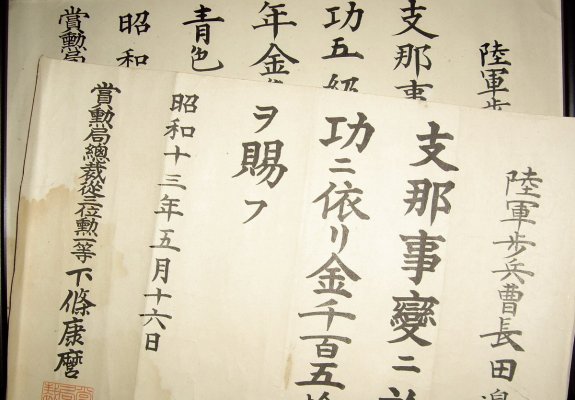 陸軍歩
支那事
功五級
年金
青色
昭和
賞勳局
陸軍歩兵曹長田邊
支那事變ニ於
功ニ依リ金千百五
ヲ賜フ
昭和十三年五月十六日
賞勳局總裁從三位勳一等下條康麿